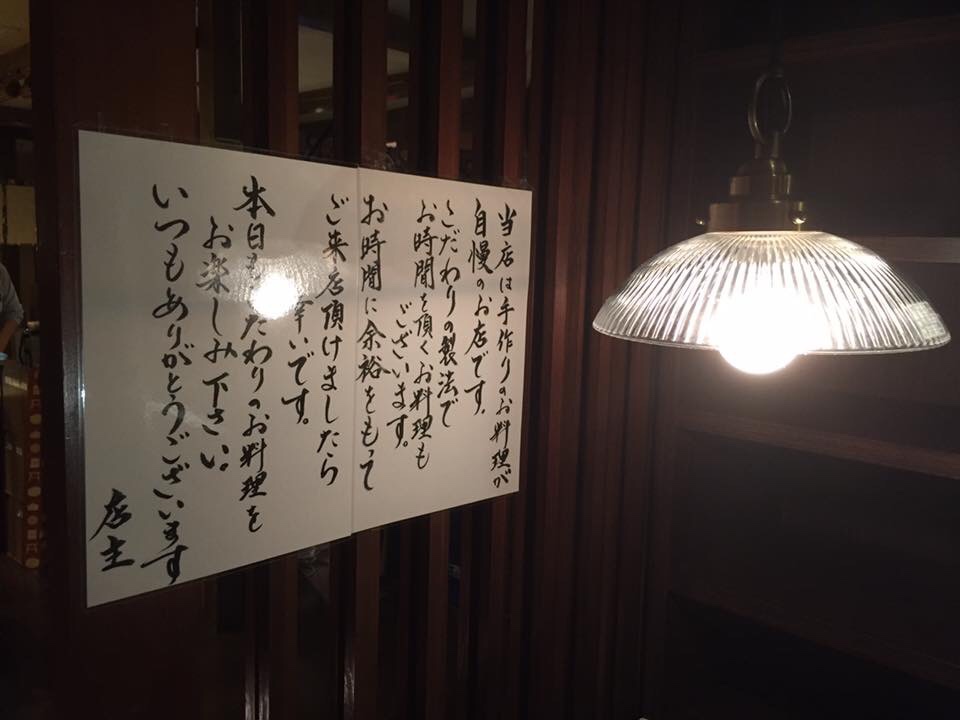 当店は手作りのお料理が
自慢のお店です。
こだわりの製法で
お時間を頂くお料理も
ございます。
お時間に余裕をもって
ご来店頂けましたら
幸いです。
本日もこだわりのお料理を
お楽しみ下さい。
いつもありがとうございます
店主